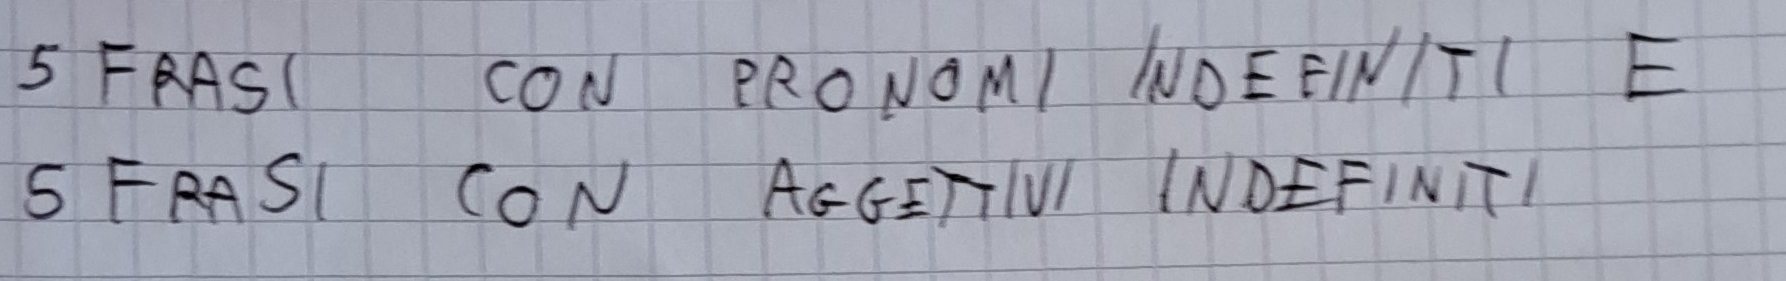 5 FRASI CON PRONOMI INDEFINITI E
5 FRASI CON AGGETTIVI INDEFINITI